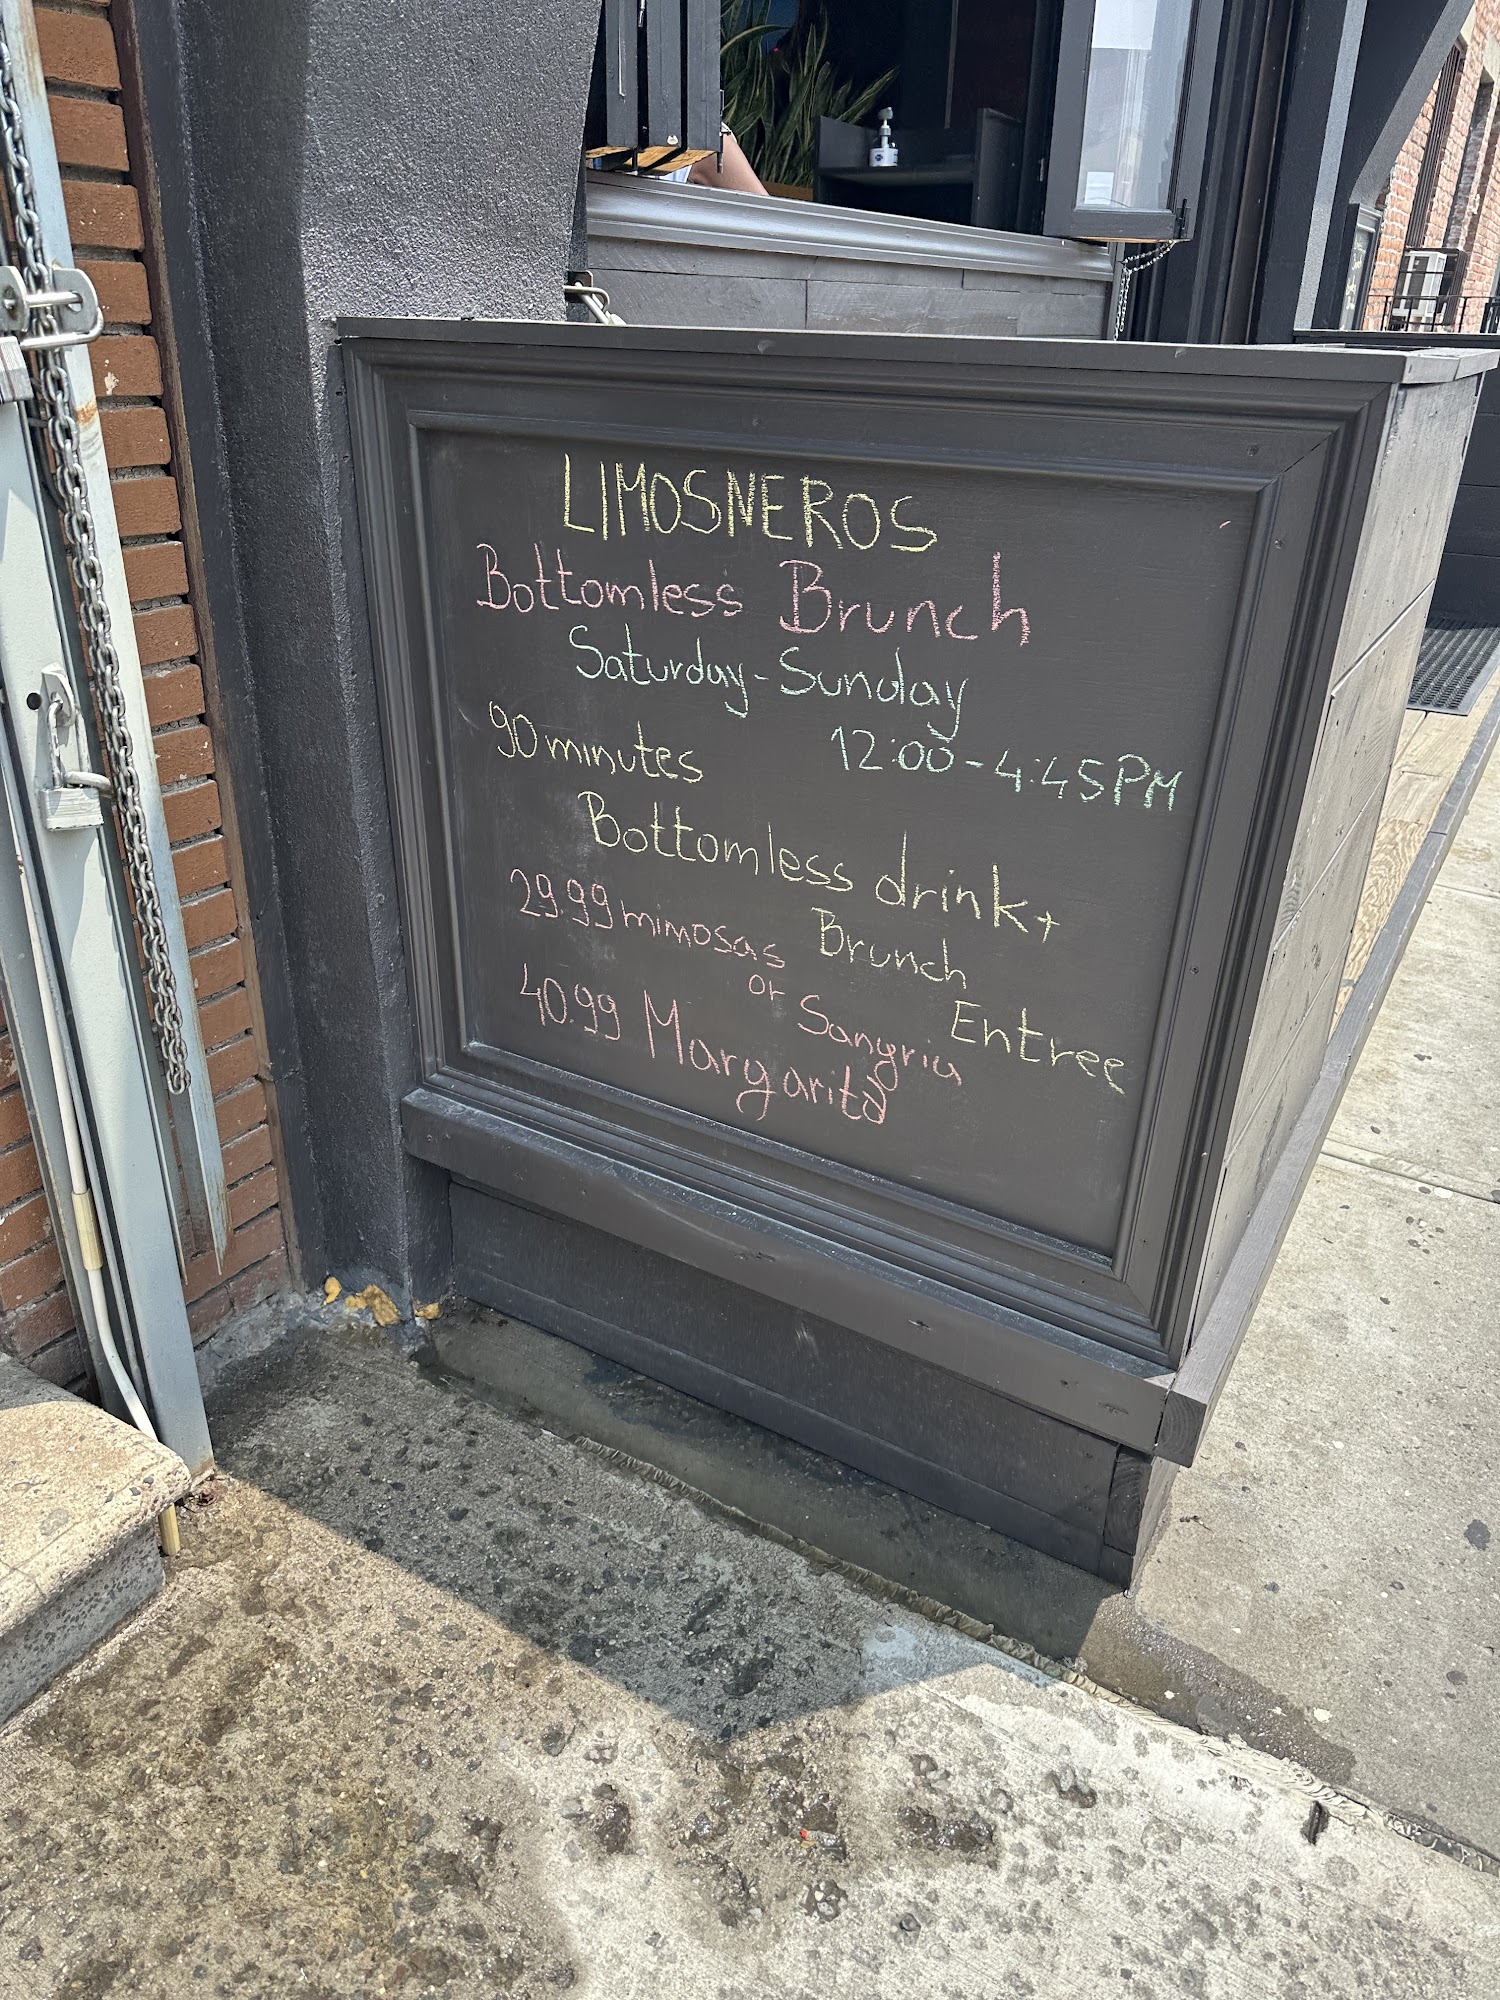 LIMOSNEROS
Bottomless Brunch
Saturday-Sunday
90 minutes 12:00-4:45PM
Bottomless drink+
Brunch
Entree
29.99 mimosas
or Sangria
40.99 Margarita